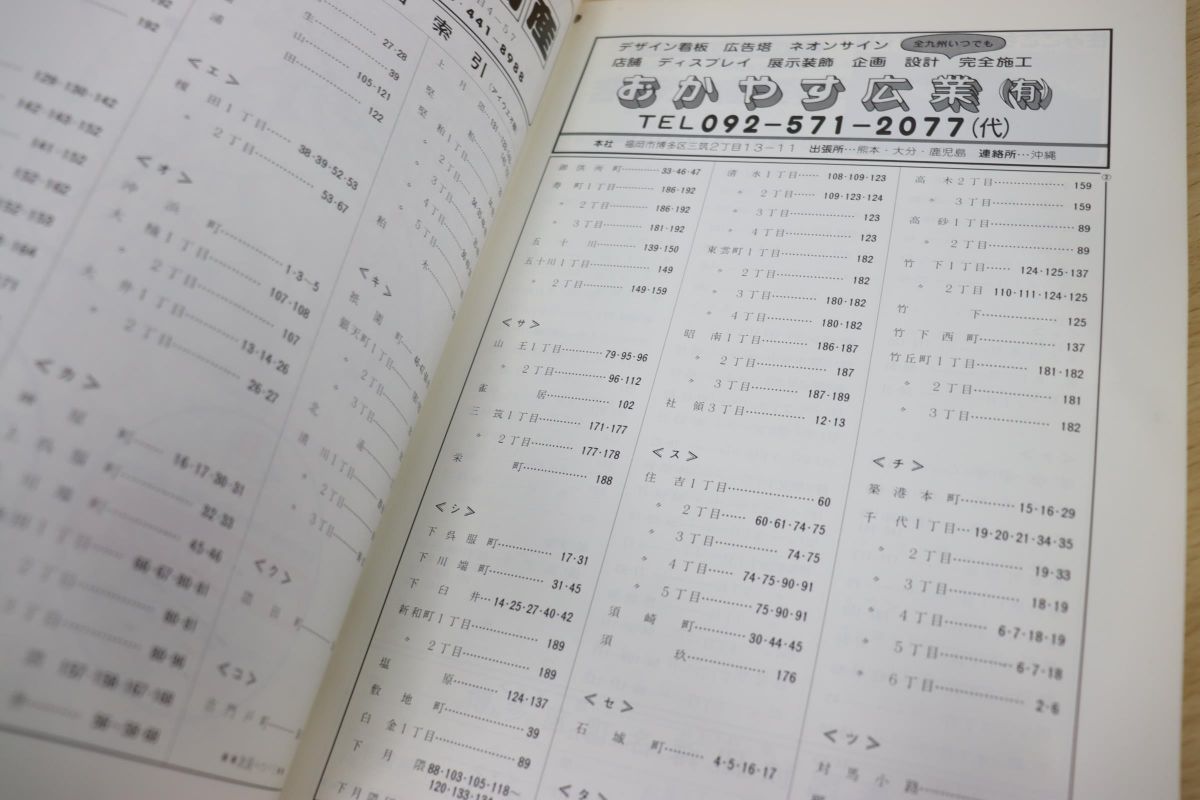 441-8988
索引
(アイウエオ順)
192
129・130・142
142・143・152
141・152
生 27・28
山 39
田 105・121
122
<エ>
榎田1丁目 38・39・52・53
〃 2丁目 53・67
<オ>
沖浜町 1・3~5
107・108
107
大井1丁目 13・14・26
〃 2丁目 26・27
<カ>
町 16・17・30・31
32・33
45・46
堅粕1丁目
〃 2丁目
〃 3丁目
〃 4丁目
〃 5丁目
<キ>
祇園町
銀天町1丁目
〃 2丁目
〃 3丁目
清川1丁目
〃 2丁目
〃 3丁目
<ク>
<コ>
デザイン看板 広告塔 ネオンサイン 全九州いつでも
店舗 ディスプレイ 展示装飾 企画 設計 完全施工
おかやす広業(有)
TEL092-571-2077(代)
本社 福岡市博多区三筑2丁目13-11 出張所…熊本・大分・鹿児島 連絡所…沖縄
御供所町 33・46・47
寿町1丁目 186・192
〃 2丁目 186・192
〃 3丁目 181・192
五十川 139・150
五十川1丁目 149
〃 2丁目 149・159
<サ>
山王1丁目 79・95・96
〃 2丁目 96・112
雀居 102
三筑1丁目 171・177
〃 2丁目 177・178
栄町 188
<シ>
下呉服町 17・31
下川端町 31・45
下臼井 14・25・27・40・42
新和町1丁目 189
〃 2丁目 189
塩原 124・137
敷地町 39
白金1丁目 89
下月隈 88・103・105・118~
120・133・134
下月隈
清水1丁目 108・109・123
〃 2丁目 109・123・124
〃 3丁目 123
〃 4丁目 123
東雲町1丁目 182
〃 2丁目 182
〃 3丁目 180・182
〃 4丁目 180・182
昭南1丁目 186・187
〃 2丁目 187
〃 3丁目 187・189
社領3丁目 12・13
<ス>
住吉1丁目 60
〃 2丁目 60・61・74・75
〃 3丁目 74・75
〃 4丁目 74・75・90・91
〃 5丁目 75・90・91
須崎町 30・44・45
須玖 176
<セ>
石城町 4・5・16・17
<タ>
高木2丁目 159
〃 3丁目 159
高砂1丁目 89
〃 2丁目 89
竹下1丁目 124・125・137
〃 2丁目 110・111・124・125
竹下 125
竹下西町 137
竹丘町1丁目 181・182
〃 2丁目 181
〃 3丁目 182
<チ>
築港本町 15・16・29
千代1丁目 19・20・21・34・35
〃 2丁目 19・33
〃 3丁目 18・19
〃 4丁目 6・7・18・19
〃 5丁目 6・7・18
〃 6丁目 2・6
<ツ>
対馬小路